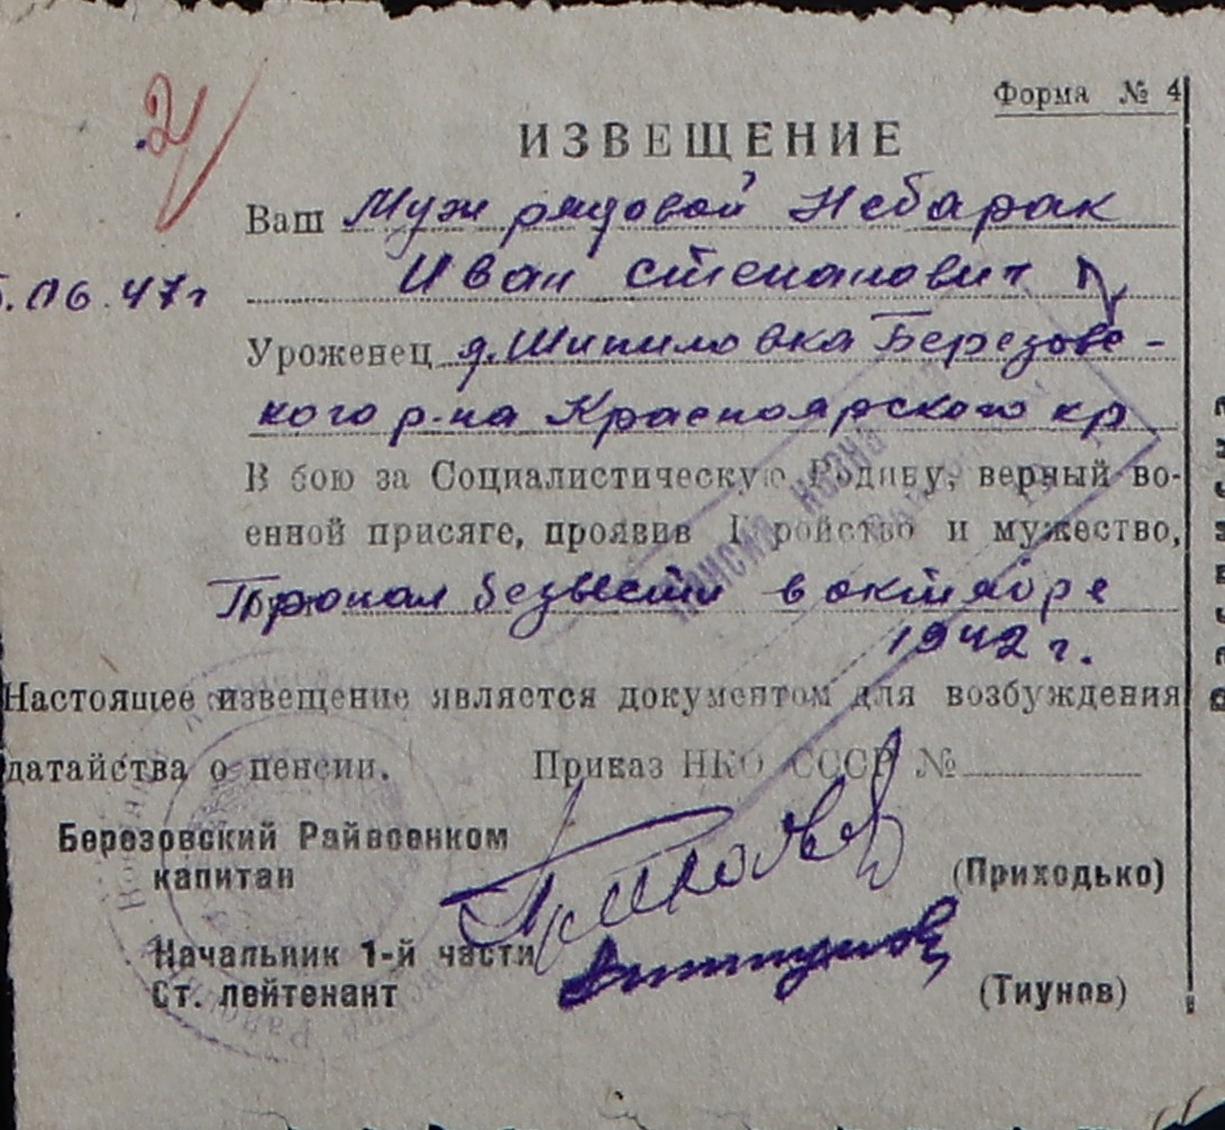 2
Форма № 4
ИЗВЕЩЕНИЕ
Ваш Муж рядовой Небарак
.06.47г Иван Степанович
Уроженец д. Шипиловка Березовс-
кого р-на Красноярского кр
В бою за Социалистическую Родину, верный во-
енной присяге, проявив Геройство и мужество,
Пропал безвести в октябре
1942 г.
Настоящее извещение является документом для возбуждения
датайства о пенсии. Приказ НКО СССР №
Березовский Райвоенком
капитан (Приходько)
Начальник 1-й части
Ст. лейтенант (Тиунов)